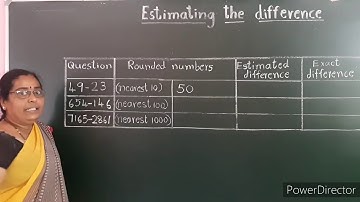 Estimating the difference
Question Rounded numbers Estimated difference Exact difference
49-23 (nearest 10) 50
654-146 (nearest 100)
7165-2861 (nearest 1000)
PowerDirector